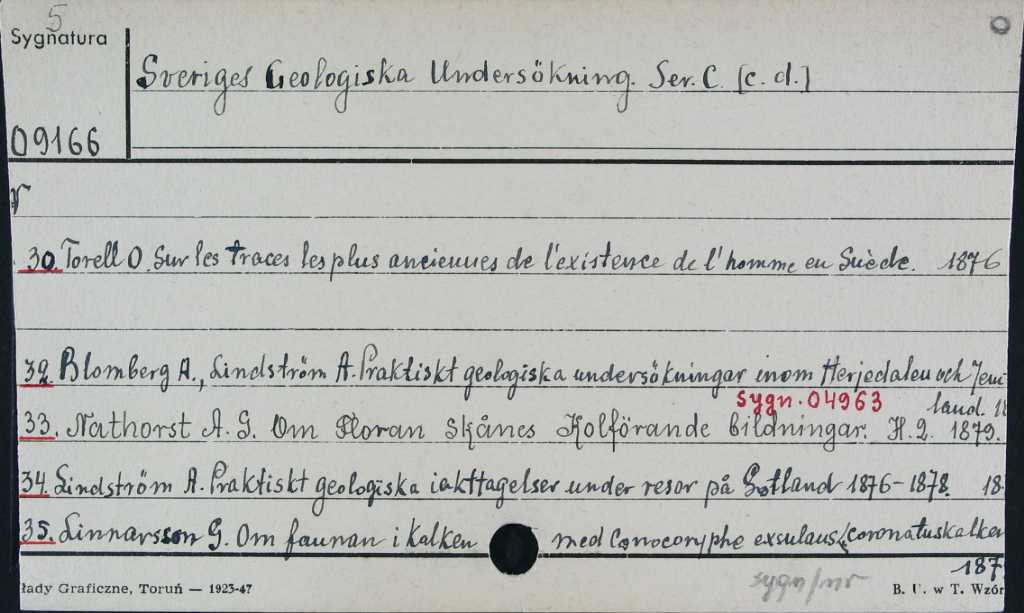 5
Sygnatura
Sveriges Geologiska Undersökning. Ser. C. [c. d.]
09166
30. Torell O. Sur les traces les plus anciennes de l'existence de l'homme en Suède. 1876
32. Blomberg A., Lindström A. Praktiskt geologiska undersökningar inom Herjedalen och Jem-
sygn. 04963 land. 18
33. Nathorst A. G. Om Floran Skånes Kolförande bildningar. H. 2. 1879.
34. Lindström A. Praktiskt geologiska iakttagelser under resor på Gotland 1876-1878. 18
35. Linnarsson G. Om faunan i Kalken med Conocoryphe exsulans (coronatuskalken
187
sygn/nr
łady Graficzne, Toruń — 1923-47
B. U. w T. Wzór